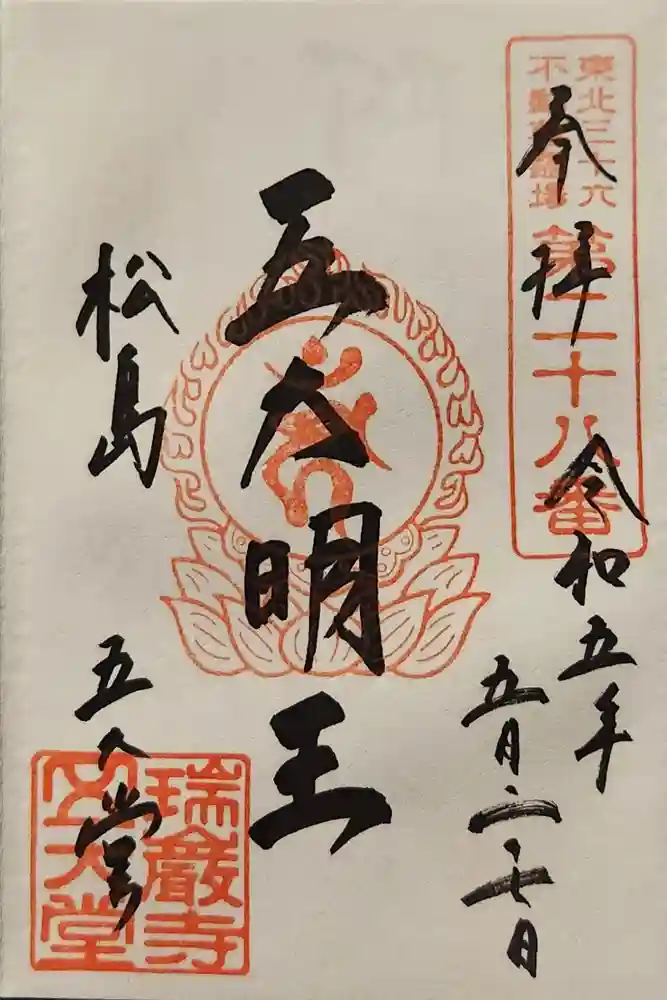 東北三十六
不動尊霊場
第二十八番
奉拝
令和五年
五月二十七日
五大明王
松島
五大堂
瑞巌寺
五大堂